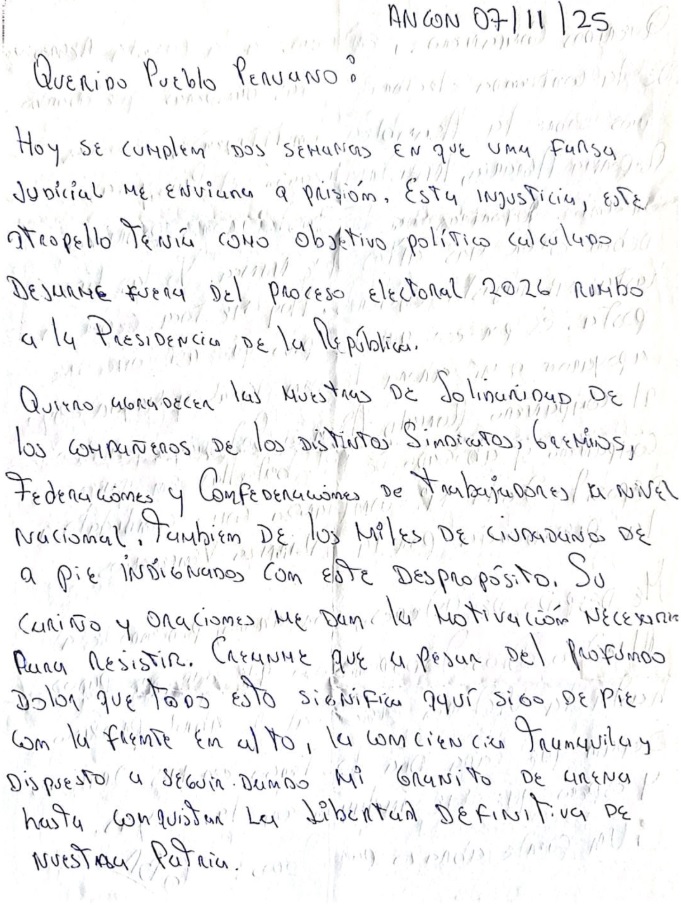 ANCON 07/11/25
QUERIDO PUEBLO PERUANO:
HOY SE CUMPLEM DOS SEMANAS EN QUE UMA FARSA
JUDICIAL ME ENVIARA A PRISIÓM. ESTA INJUSTICIA, ESTE
ATROPELLO TENÍA COMO OBJETIVO POLÍTICO CALCULADO
DEJARME FUERA DEL PROCESO ELECTORAL 2026 RUMBO
A LA PRESIDENCIA DE LA REPÚBLICA.
QUIERO AGRADECER LAS MUESTRAS DE SOLIDARIDAD DE
LOS COMPAÑEROS DE LOS DISTINTOS SINDICATOS, GREMIOS,
FEDERACIONES Y CONFEDERACIONES DE TRABAJADORES A NIVEL
NACIONAL. TAMBIEM DE LOS MILES DE CIUDADANOS DE
A PIE INDIGNADOS COM ESTE DESPROPÓSITO. SU
CARIÑO Y ORACIONES ME DAM LA MOTIVACIÓM NECESARIA
PARA RESISTIR. CREANME QUE A PESAR DEL PROFUMDO
DOLOR QUE TODO ESTO SIGNIFICA AQUÍ SIGO DE PIE
COM LA FRENTE EM ALTO, LA COMCIENCIA TRAMQUILA Y
DISPUESTO A SEGUIR DAMDO MI GRANITO DE ARENA
HASTA COMQUISTAR LA LIBERTAD DEFINITIVA DE
NUESTRA PATRIA.